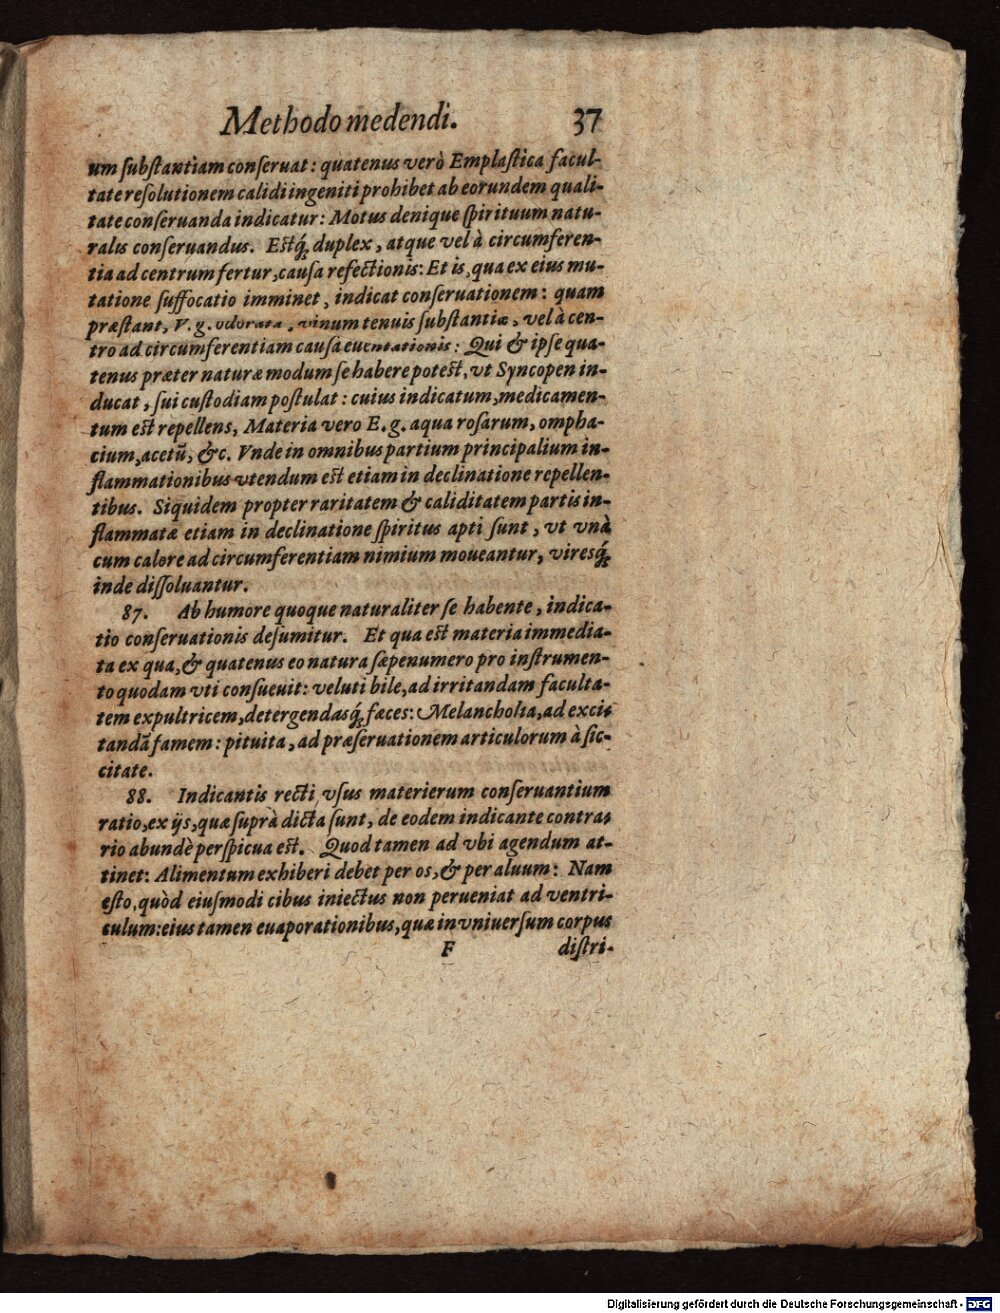 Methodo medendi. 37
um ſubſtantiam conſeruat: quatenus verò Emplaſtica facul-
tate reſolutionem calidi ingeniti prohibet ab eorundem quali-
tate conſeruanda indicatur: Motus denique ſpirituum natu-
ralis conſeruandus. Eſtq́; duplex, atque vel à circumferen-
tia ad centrum fertur, cauſa refectionis: Et is, qua ex eius mu-
tatione ſuffocatio imminet, indicat conſeruationem: quam
præſtant, V. g. odorata, vinum tenuis ſubſtantiæ, vel à cen-
tro ad circumferentiam cauſa euentationis: Qui & ipſe qua-
tenus præter naturæ modum ſe habere poteſt, vt Syncopen in-
ducat, ſui cuſtodiam poſtulat: cuius indicatum, medicamen-
tum eſt repellens, Materia vero E. g. aqua roſarum, ompha-
cium, acetū, &c. Vnde in omnibus partium principalium in-
flammationibus vtendum eſt etiam in declinatione repellen-
tibus. Siquidem propter raritatem & caliditatem partis in-
flammatæ etiam in declinatione ſpiritus apti ſunt, vt vnà
cum calore ad circumferentiam nimium moueantur, viresq́;
inde diſſoluantur.
87. Ab humore quoque naturaliter ſe habente, indica-
tio conſeruationis deſumitur. Et qua eſt materia immedia-
ta ex qua, & quatenus eo natura ſæpenumero pro inſtrumen-
to quodam vti conſueuit: veluti bile, ad irritandam faculta-
tem expultricem, detergendasq́; fæces: Melancholia, ad exci-
tandā famem: pituita, ad præſeruationem articulorum à ſic-
citate.
88. Indicantis recti vſus materierum conſeruantium
ratio, ex ijs, quæ ſuprà dicta ſunt, de eodem indicante contra-
rio abundè perſpicua eſt. Quod tamen ad vbi agendum at-
tinet: Alimentum exhiberi debet per os, & per aluum: Nam
eſto, quòd eiuſmodi cibus iniectus non perueniat ad ventri-
culum: eius tamen euaporationibus, quæ in vniuerſum corpus
F diſtri-
Digitalisierung gefördert durch die Deutsche Forschungsgemeinschaft - DFG